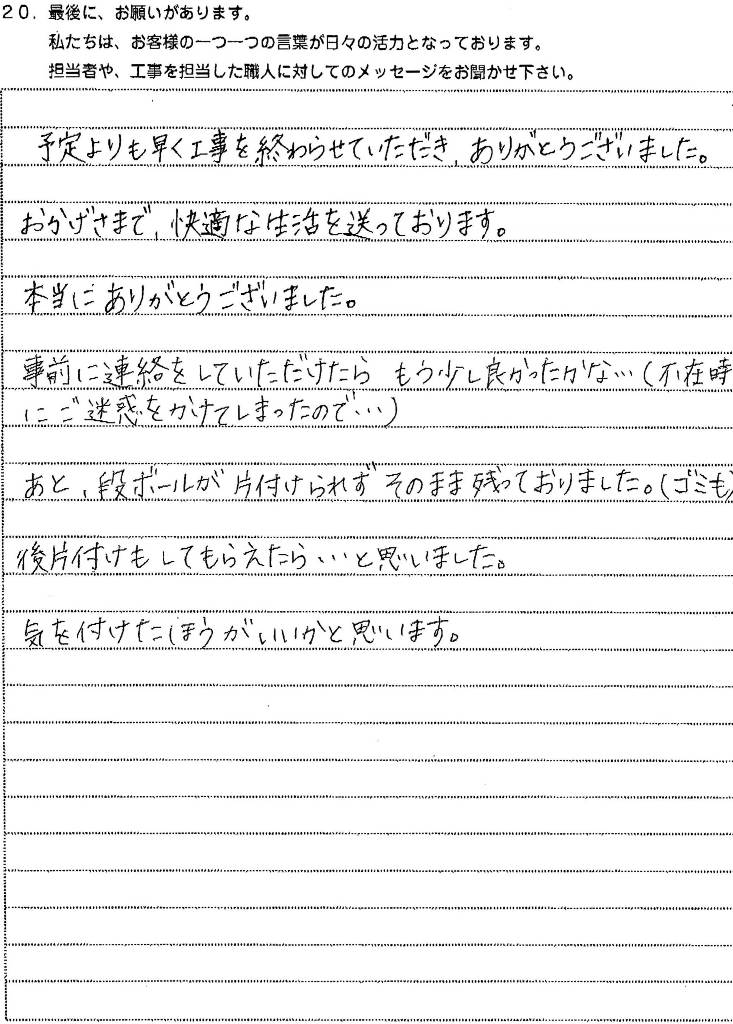 20. 最後に、お願いがあります。
私たちは、お客様の一つ一つの言葉が日々の活力となっております。
担当者や、工事を担当した職人に対してのメッセージをお聞かせ下さい。
予定よりも早く工事を終わらせていただき、ありがとうございました。
おかげさまで、快適な生活を送っております。
本当にありがとうございました。
事前に連絡をしていただけたら もう少し良かったかな…(不在時
にご迷惑をかけてしまったので…)
あと、段ボールが片付けられずそのまま残っておりました。(ゴミも)
後片付けもしてもらえたら…と思いました。
気を付けたほうがいいかと思います。